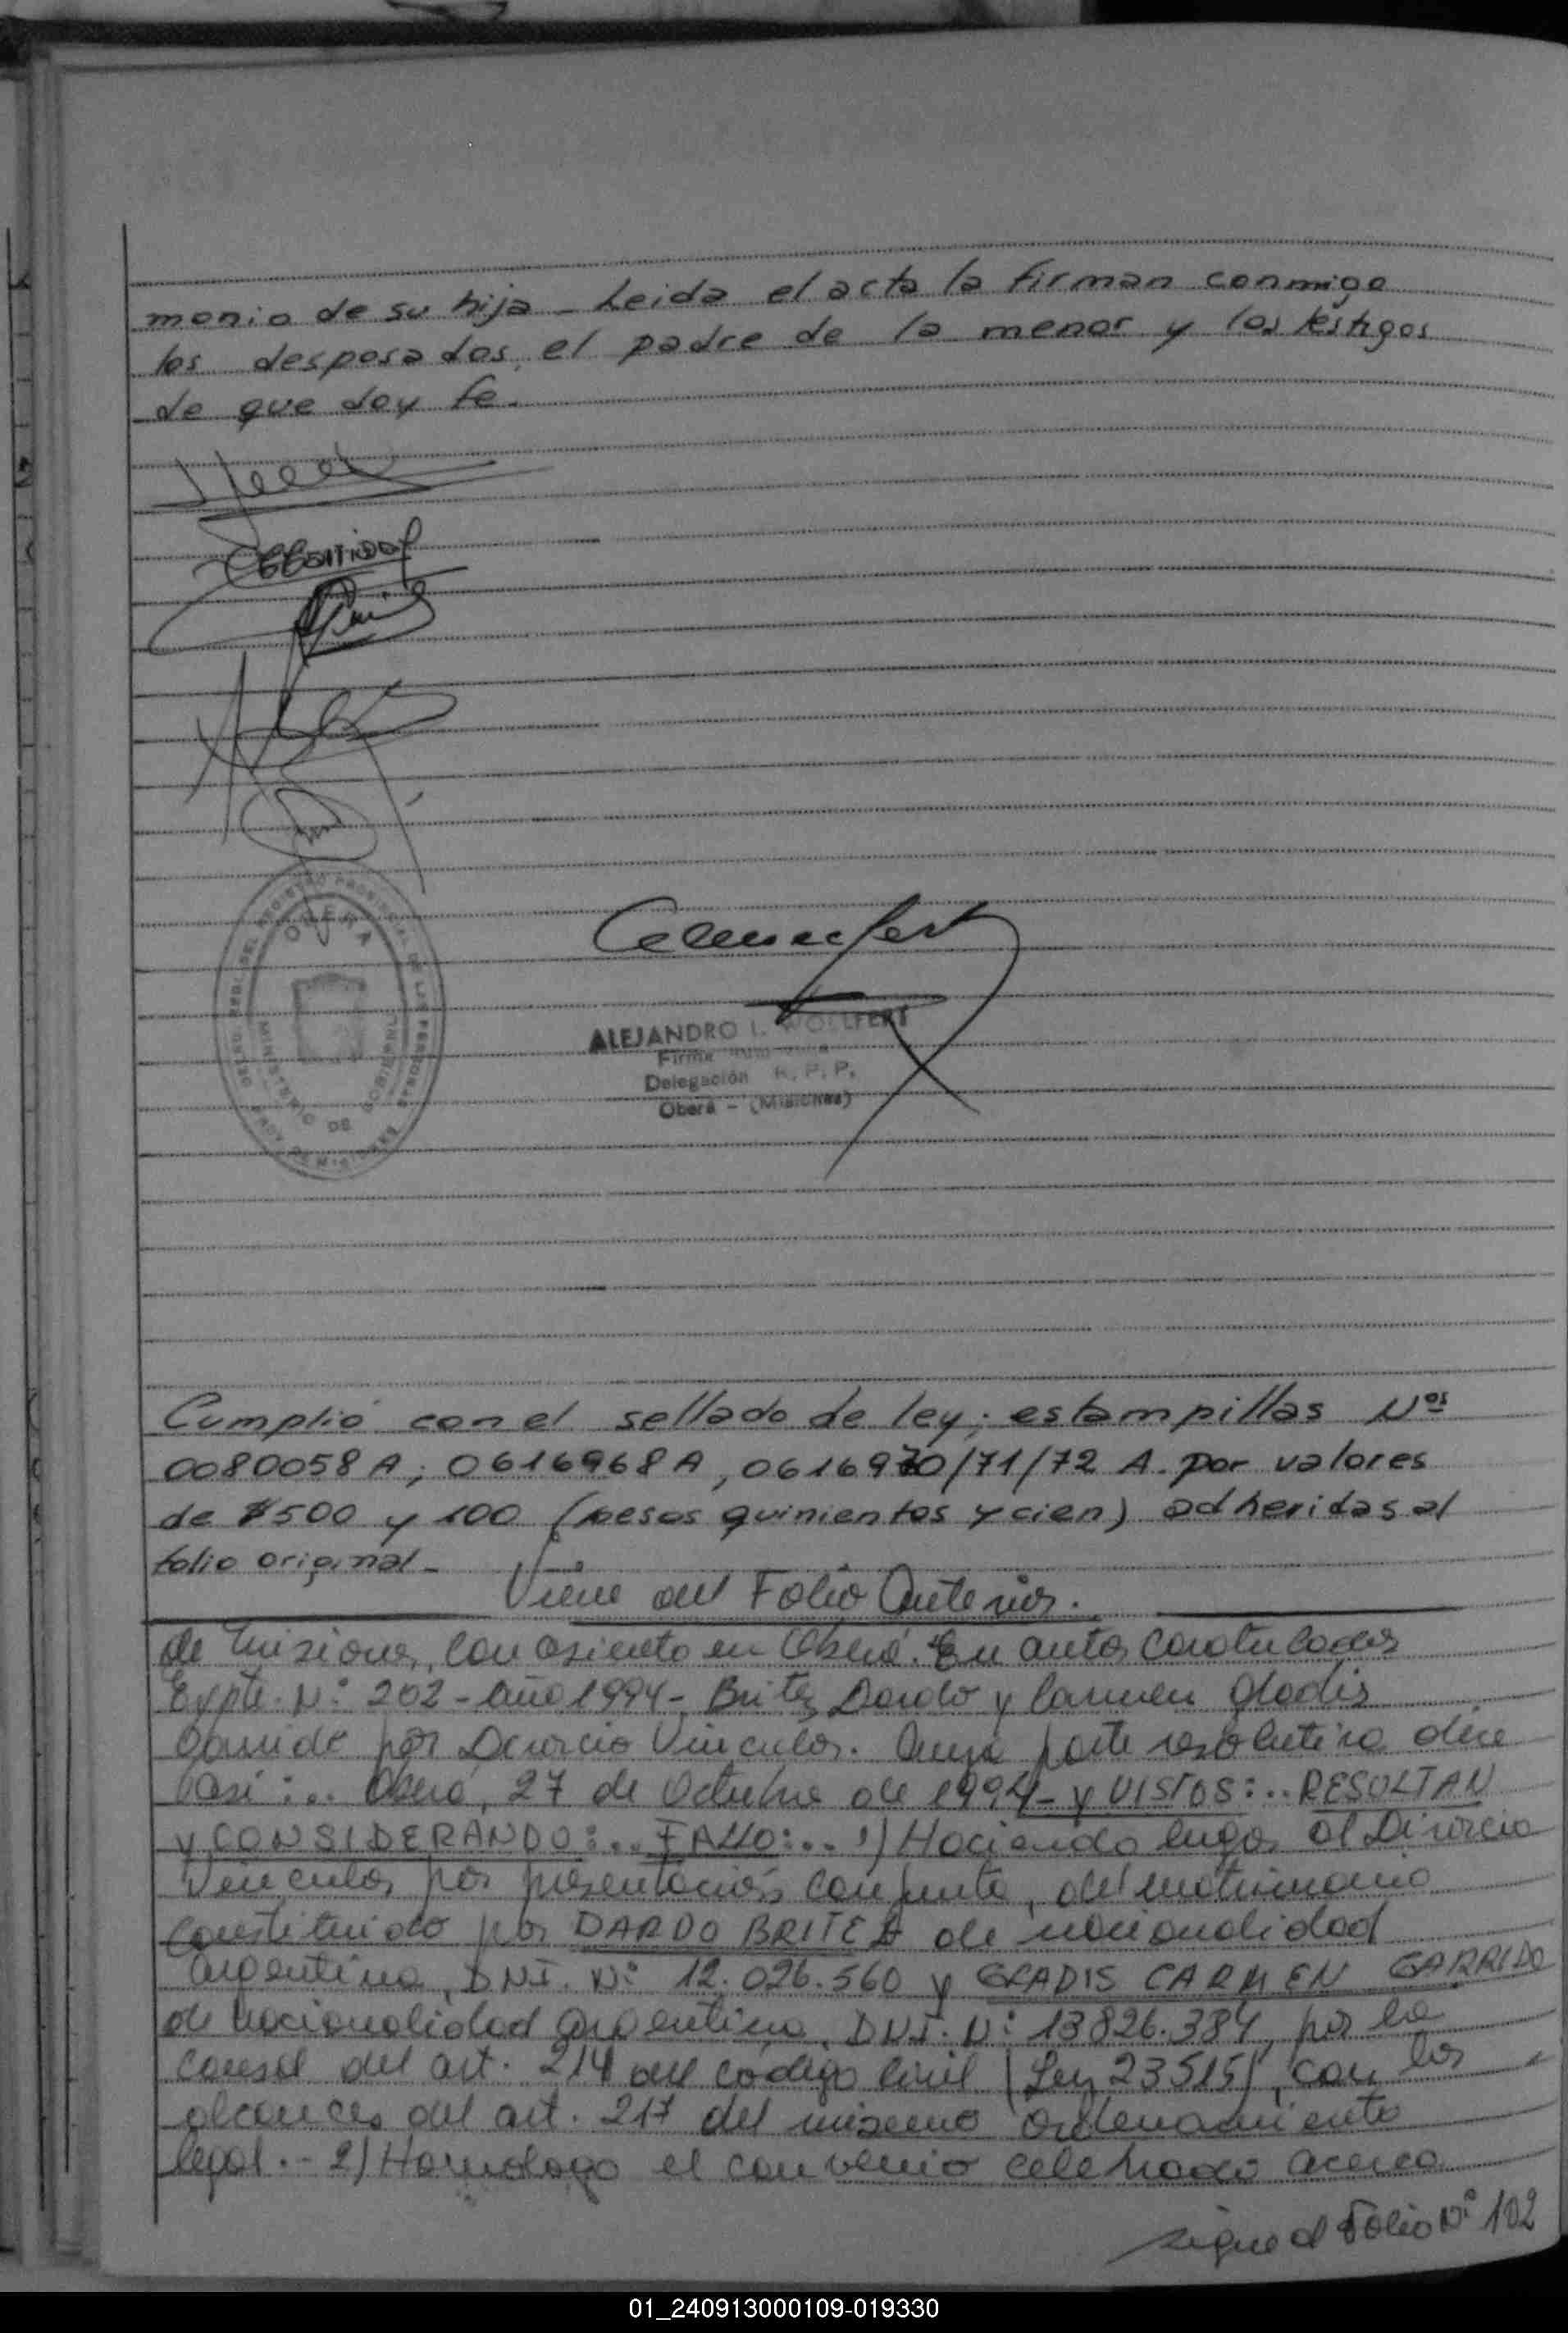 monio de su hija - Leida el acta la firman conmigo
los desposados, el padre de la menor y los testigos
de que doy fe.
OBERA
MINISTERIO DE GOBIERNO
ALEJANDRO I. WOLLFERT
Firma
Delegación R. P. P.
Oberá - (Misiones)
Cumplió con el sellado de ley; estampillas Nos
0080058 A; 0616968 A, 0616970/71/72 A. por valores
de $500 y 100 (pesos quinientos y cien) adheridas al
folio original -
Viene del Folio Anterior.
de Misiones, con asiento en Oberá. En autos caratulados
Expte. Nº 202 - Año 1994 - Britez Dardo y Carmen Gladis
Garrido por Divorcio Vincular. Cuya parte resolutiva dice
así:.. Oberá, 27 de Octubre de 1994 - y VISTOS:.. RESULTAN
y CONSIDERANDO:.. FALLO:.. 1) Haciendo lugar al Divorcio
Vincular por presentación conjunta, del matrimonio
constituido por DARDO BRITEZ de nacionalidad
Argentina, DNI. Nº 12.026.560 y GLADIS CARMEN GARRIDO
de nacionalidad argentina, DNI. Nº 13826.384, por la
causal del art. 214 del código Civil (Ley 23515), con los
alcances del art. 217 del mismo ordenamiento
legal. - 2) Homologo el convenio celebrado acerca
sigue al Folio Nº 102
01_240913000109-019330